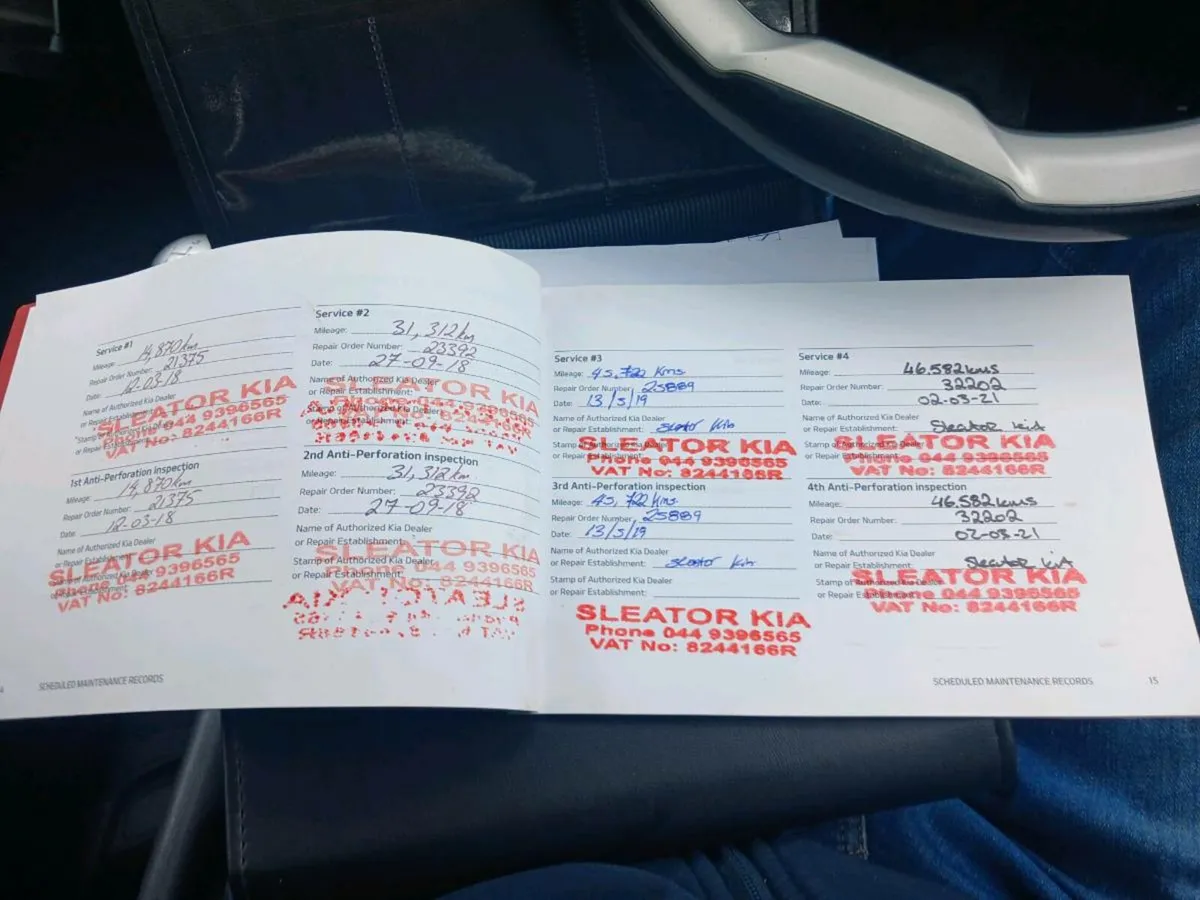 Service #1
Mileage: 14,870km
Repair Order Number: 21375
Date: 12-03-18
Name of Authorized Kia Dealer
or Repair Establishment:
Stamp of Authorized Kia Dealer
or Repair Establishment:
SLEATOR KIA
Phone 044 9396565
VAT No: 8244166R
1st Anti-Perforation inspection
Mileage: 14,870km
Repair Order Number: 21375
Date: 12-03-18
Name of Authorized Kia Dealer
or Repair Establishment:
Stamp of Authorized Kia Dealer
or Repair Establishment:
SLEATOR KIA
Phone 044 9396565
VAT No: 8244166R
Service #2
Mileage: 31,312km
Repair Order Number: 23392
Date: 27-09-18
Name of Authorized Kia Dealer
or Repair Establishment:
Stamp of Authorized Kia Dealer
or Repair Establishment:
SLEATOR KIA
2nd Anti-Perforation inspection
Mileage: 31,312km
Repair Order Number: 23392
Date: 27-09-18
Name of Authorized Kia Dealer
or Repair Establishment:
Stamp of Authorized Kia Dealer
or Repair Establishment:
SLEATOR KIA
Phone 044 9396565
VAT No: 8244166R
SCHEDULED MAINTENANCE RECORDS
Service #3
Mileage: 45,722 Kms
Repair Order Number: 25889
Date: 13/5/19
Name of Authorized Kia Dealer
or Repair Establishment: Sleator Kia
Stamp of Authorized Kia Dealer
or Repair Establishment:
SLEATOR KIA
Phone 044 9396565
VAT No: 8244166R
3rd Anti-Perforation inspection
Mileage: 45,722 Kms
Repair Order Number: 25889
Date: 13/5/19
Name of Authorized Kia Dealer
or Repair Establishment: Sleator Kia
Stamp of Authorized Kia Dealer
or Repair Establishment:
SLEATOR KIA
Phone 044 9396565
VAT No: 8244166R
Service #4
Mileage: 46,582kms
Repair Order Number: 32202
Date: 02-03-21
Name of Authorized Kia Dealer
or Repair Establishment: Sleator Kia
Stamp of Authorized Kia Dealer
or Repair Establishment:
SLEATOR KIA
Phone 044 9396565
VAT No: 8244166R
4th Anti-Perforation inspection
Mileage: 46,582kms
Repair Order Number: 32202
Date: 02-03-21
Name of Authorized Kia Dealer
or Repair Establishment: Sleator Kia
Stamp of Authorized Kia Dealer
or Repair Establishment:
SLEATOR KIA
Phone 044 9396565
VAT No: 8244166R
SCHEDULED MAINTENANCE RECORDS 15